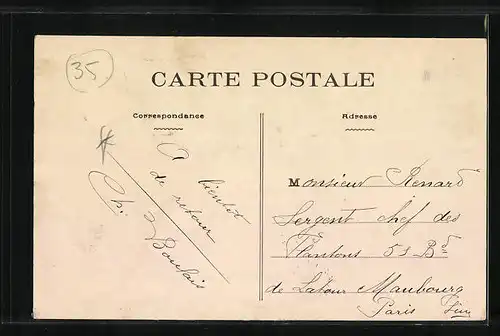 35
CARTE POSTALE
Correspondance
Adresse
A bientôt
de retour
Ch. Boulais
Monsieur Renard
Sergent chef des
Plantons 51 Bᵈ
de Latour Maubourg
Paris